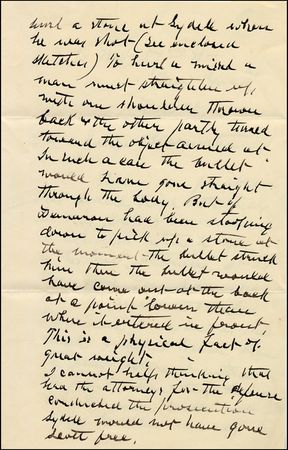 hurl a stone at Sydell when
he was shot (see enclosed
sketches) To hurl a missile a
man must straighten up,
with one shoulder thrown
back & the other partly turned
toward the object aimed at
In such a case the bullet
would have gone straight
through the body. But if
Dameron had been stooping
down to pick up a stone at
the moment the bullet struck
him then the bullet would
have come out at the back
at a point lower than
where it entered in front.
This is a physical fact of
great weight
I cannot help thinking that
had the attorneys for the defense
conducted the prosecution
Sydell would not have gone
scott free.